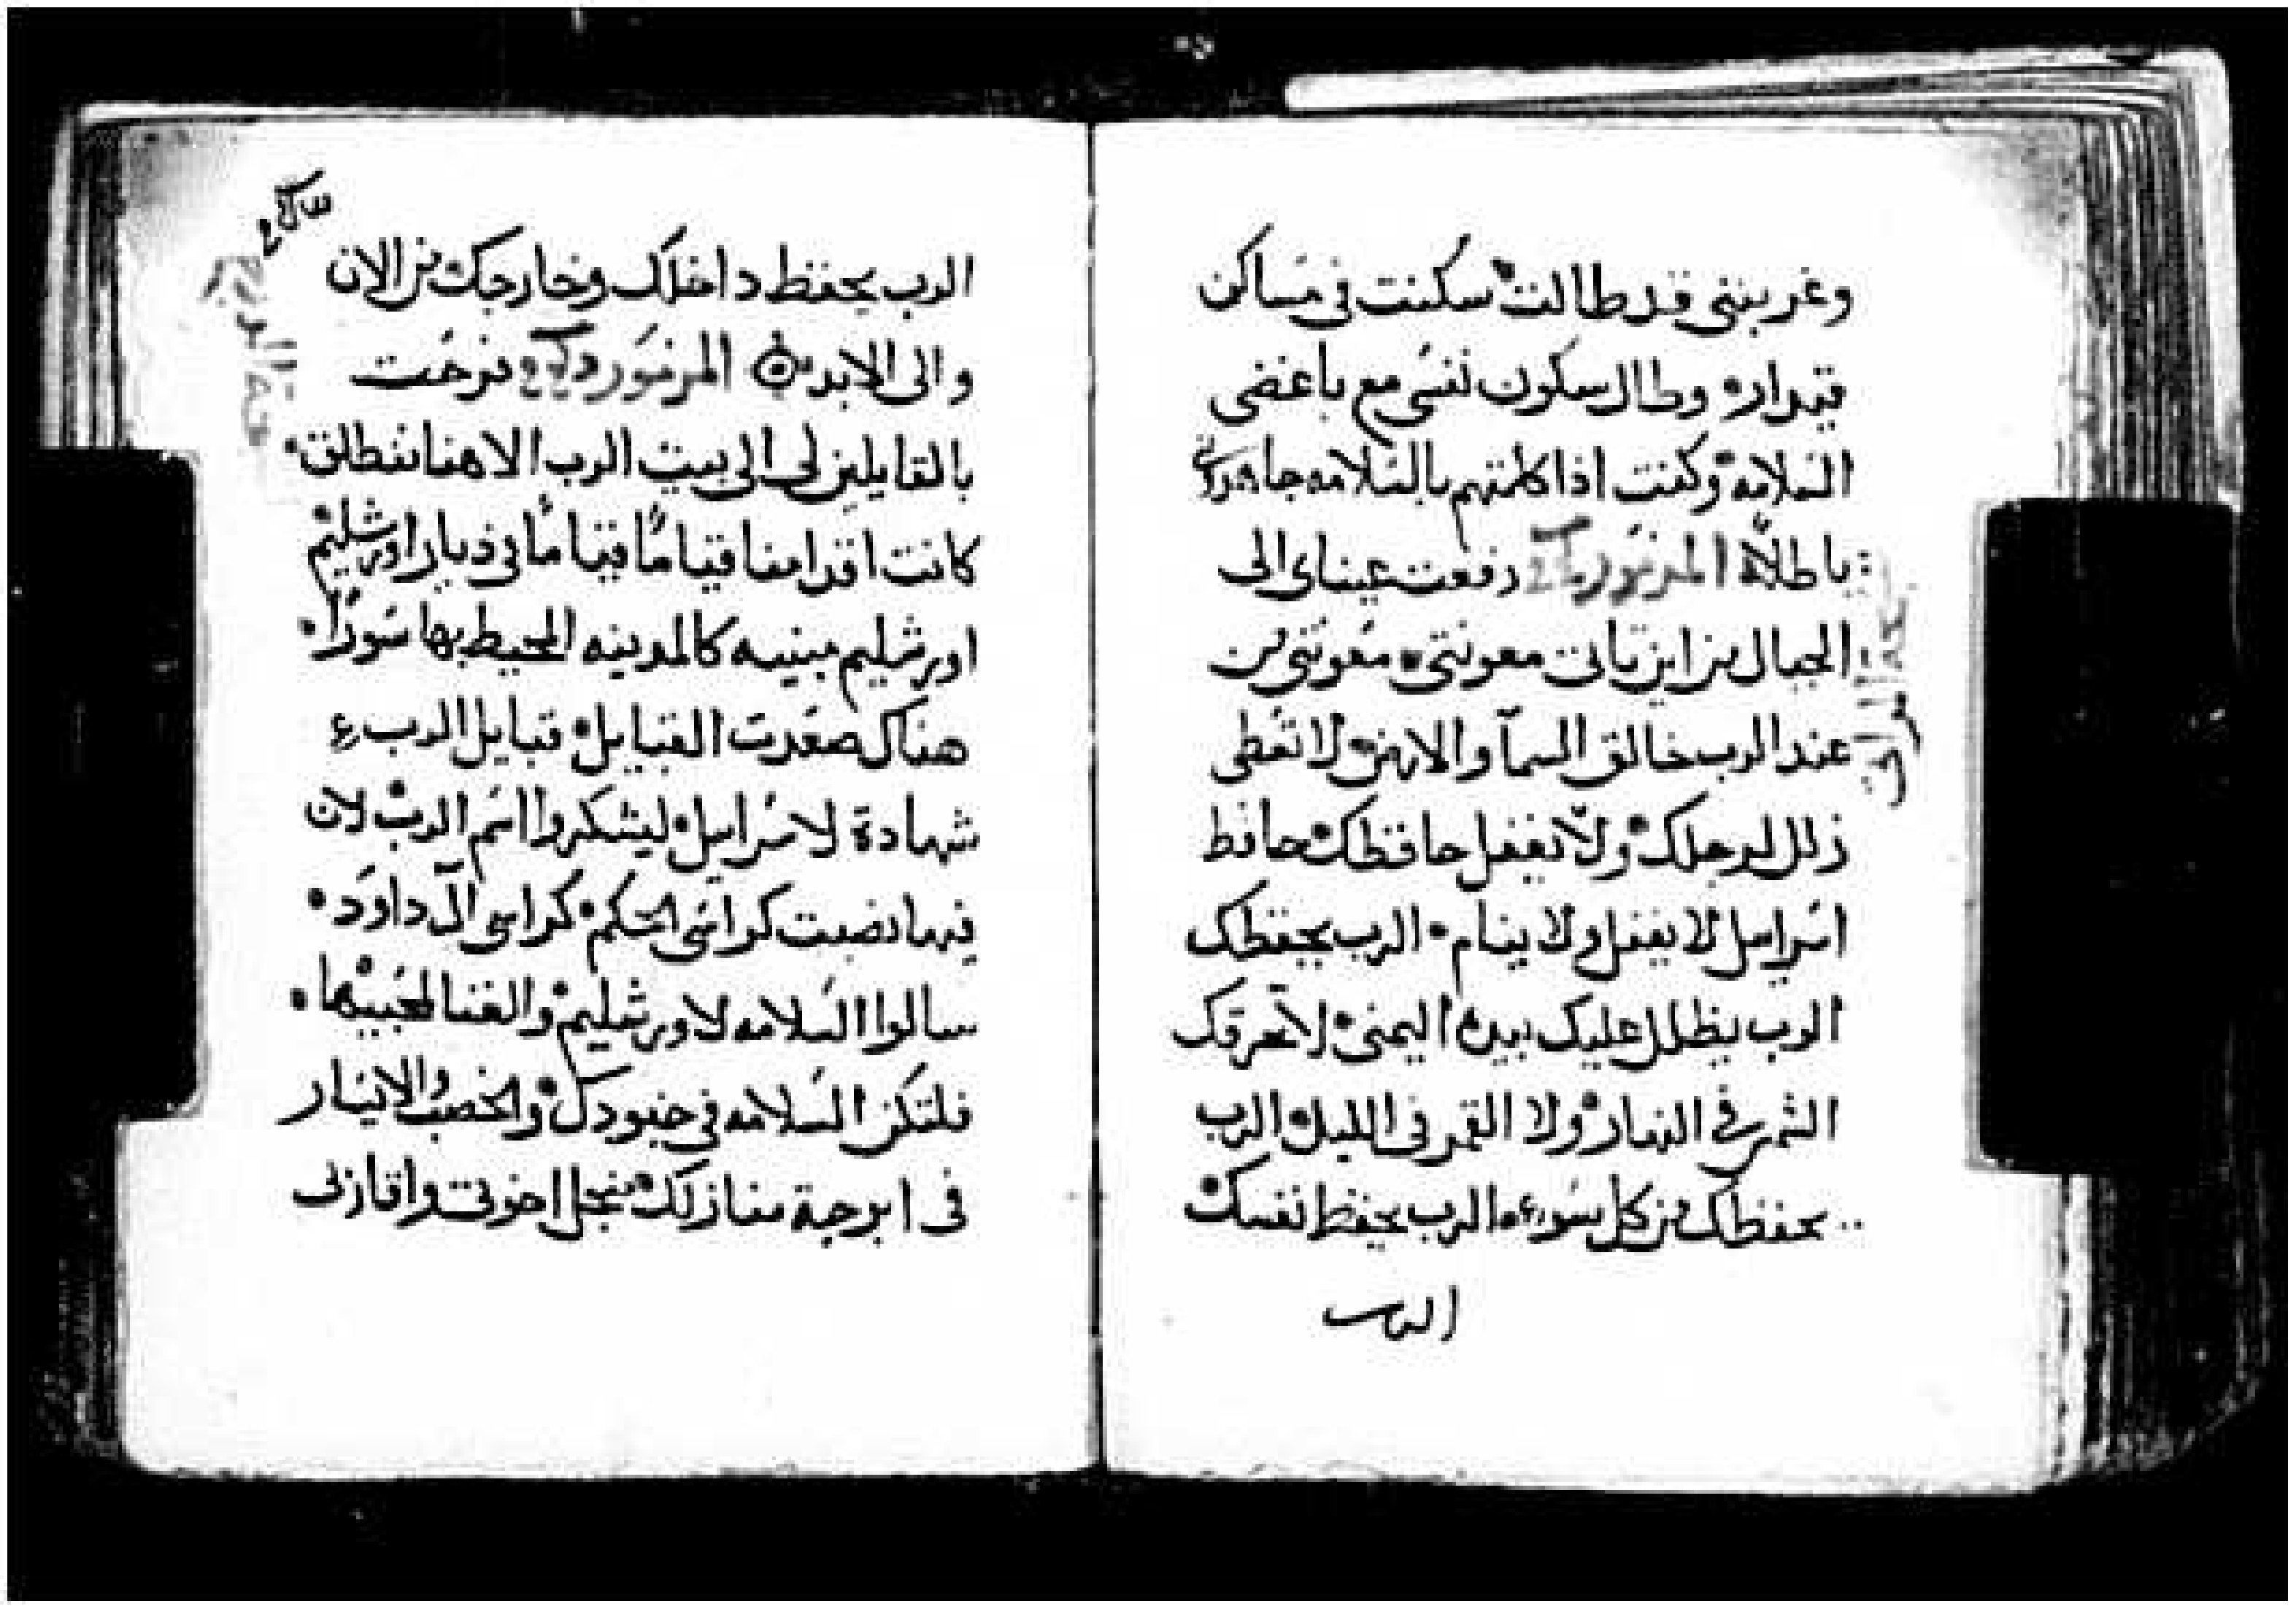 وغربتى قد طالت سكنت فى مساكن
قيدار وطال سكون نفسى مع باغضى
السلامه وكنت اذا كلمتهم بالسلامه جاهدونى
باطلاً المزمور رفعت عيناى الى
الجبال من اين ياتى معونتى معونتى من
عند الرب خالق السمآ والارض لا تعطى
زلل لرجلك ولا يغفل حافظك حافظ
اسراييل لا يغفل ولا ينام الرب يحفظك
الرب يظلل عليك بيده اليمنى لا تحرقك
الشمس فى النهار ولا القمر فى الليل الرب
يحفظك من كل سوء الرب يحفظ نفسك
الرب
الرب يحفظ داخلك وخارجك من الان
والى الابد المزمور فرحت
بالقايلين لى الى بيت الرب الاهنا ننطلق
كانت اقدامنا قياماً قياماً فى ديار اورشليم
اورشليم مبنيه كالمدينه المحيط بها سوراً
هناك صعدت القبايل قبايل الرب ع
شهادة لاسراييل ليشكروا اسم الرب لان
فيها نصبت كراسى الحكم كراسى آل داود
سالوا السلامه لاورشليم والغنا لمحبيها
فلتكن السلامه فى جنودك والخصب والانيار
فى ابرجة منازلك منجل اخوتى واقاربى